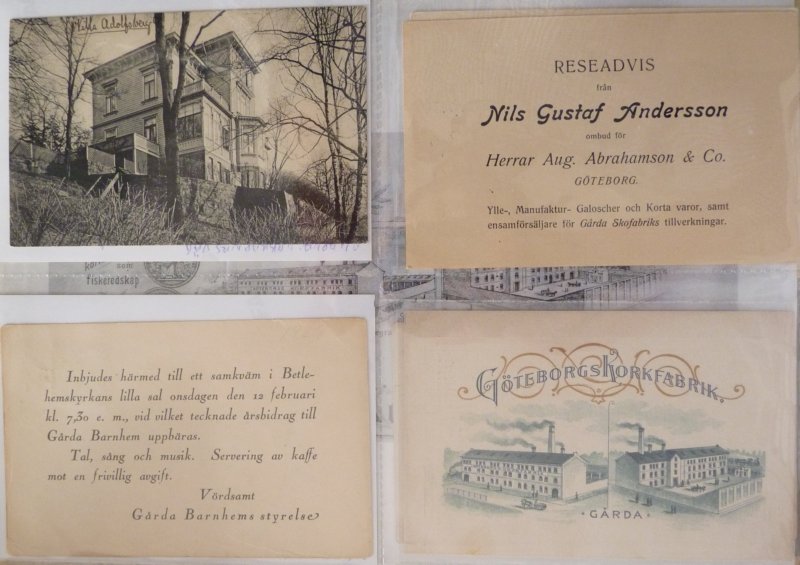 Villa Adolfsberg
RESEADVIS
från
Nils Gustaf Andersson
ombud för
Herrar Aug. Abrahamson & Co.
GÖTEBORG.
Ylle-, Manufaktur- Galoscher och Korta varor, samt
ensamförsäljare för Gårda Skofabriks tillverkningar.
som
fiskeredskap
Inbjudes härmed till ett samkväm i Betle-
hemskyrkans lilla sal onsdagen den 12 februari
kl. 7,30 e. m., vid vilket tecknade årsbidrag till
Gårda Barnhem uppbäras.
Tal, sång och musik. Servering av kaffe
mot en frivillig avgift.
Vördsamt
Gårda Barnhems styrelse
GÖTEBORGS KORKFABRIK.
GÅRDA